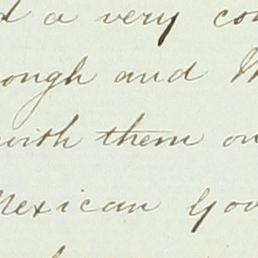 d a very co
ough and M
with them on
Mexican Gov